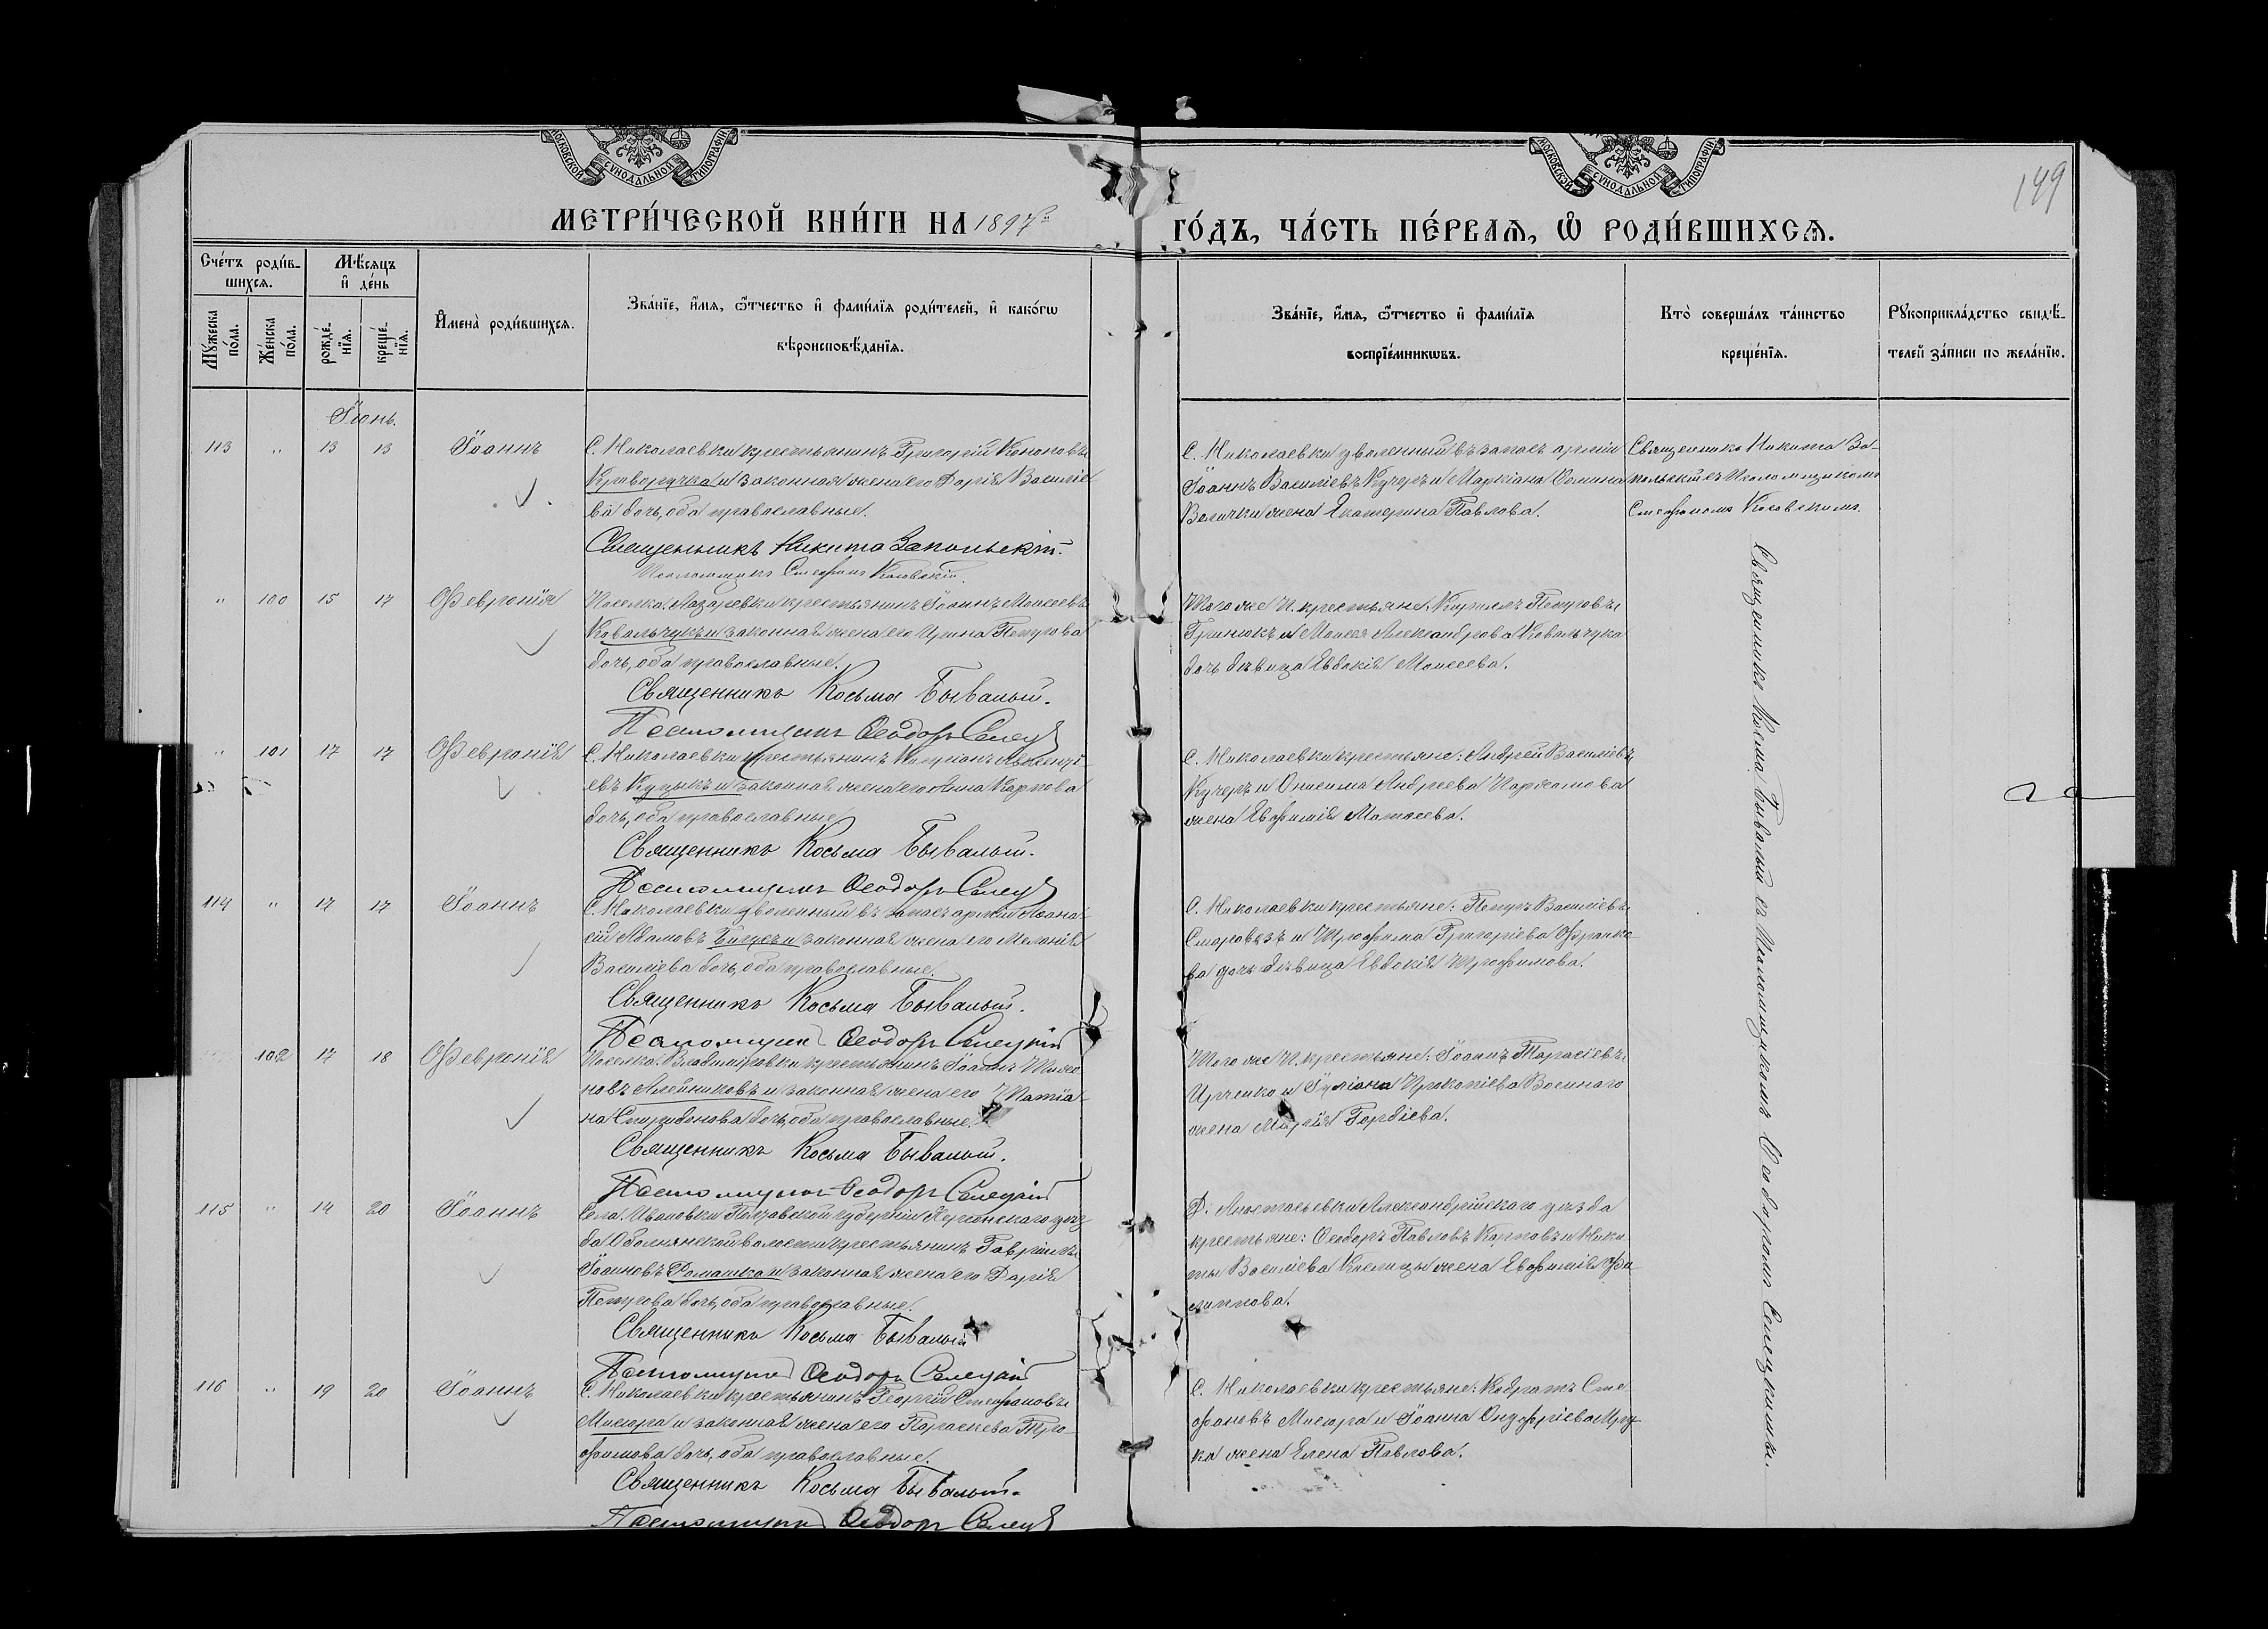 МОСКОВСКОЙ СѴНОДАЛЬНОЙ ТИПОГРАФІИ
МОСКОВСКОЙ СѴНОДАЛЬНОЙ ТИПОГРАФІИ
149
МЕТРИ́ЧЕСКОЙ КНИ́ГИ НА 1897й ГО́ДЪ, ЧА́СТЬ ПЕ́РВАѦ, Ѡ҆ РОДИ́ВШИХСѦ.
Сче́тъ роди́в-
шихсѧ.
Мꙋ́жеска по́ла.
Же́нска по́ла.
Мѣ́сѧцъ
и҆ де́нь
рожде́-
нїѧ.
креще́-
нїѧ.
И҆мена̀ роди́вшихсѧ.
Зва́нїе, и҆́мѧ, ѻ҆́тчество и҆ фами́лїѧ роди́телей, и҆ како́гѡ
вѣроисповѣ́данїѧ.
Зва́нїе, и҆́мѧ, ѻ҆́тчество и҆ фами́лїѧ
воспрїе́мникѡвъ.
Кто̀ соверша́лъ та́инство
креще́нїѧ.
Рꙋкоприкла́дство свидѣ́-
телей за́писи по жела́нїю.
Іюнь.
113 " 13 13 Іоаннъ
С. Николаевки крестьянинъ Григорій Кононовъ
Криворучка и законная жена его Дарія Василіе
ва дочь, оба православные.
Священникъ Никита Запольскій.
Псаломщикъ Стефанъ Косовскій.
С. Николаевки уволенный въ запасъ арміи
Іоаннъ Василіевъ Кучеръ и Маркіана Ѳомина
Велички жена Екатерина Павлова.
Священникъ Никита За-
польскій съ Псаломщикомъ
Стефаномъ Косовскимъ.
" 100 15 17 Февронія
Поселка Лазаревки крестьянинъ Іоаннъ Моисеевъ
Ковальчукъ и законная жена его Ирина Петрова
дочь, оба православные.
Священникъ Косьма Бывалый.
Псаломщикъ Ѳеодоръ Селецк
Того же п. крестьяне: Кириллъ Петровъ
Гринюкъ и Моисея Александрова Ковальчука
дочь дѣвица Евдокія Моисеева.
Священникъ Косма Бывалый съ Псаломщикомъ Ѳеодоромъ Селецкимъ.
" 101 17 17 Февронія
С. Николаевки крестьянинъ Авксенті-
евъ Куцыкъ и законная жена его Анна Карпова
дочь, оба православные.
Священникъ Косьма Бывалый.
Псаломщикъ Ѳеодоръ Селецк
С. Николаевки крестьяне: Андрей Василіевъ
Кучеръ и Онисима Андреева Пархомова
жена Евфимія Матѳеева.
114 " 17 17 Іоаннъ
С. Николаевки уволенный въ запасъ арміи Аѳана-
сій Адамовъ и законная жена его Меланія
Василіева дочь, оба православные.
Священникъ Косьма Бывалый.
Псаломщикъ Ѳеодоръ Селецкій
С. Николаевки крестьяне: Петръ Василіевъ
и Трофима Григоріева Франко-
ва дочь дѣвица Евдокія Трофимова.
102 17 18 Февронія
Поселка Владиміровки крестьянинъ Іоаннъ Тимо
новъ Алейниковъ и законная жена его Татіа-
на Спиридонова дочь, оба православные.
Священникъ Косьма Бывалый.
Псаломщикъ Ѳеодоръ Селецкій
Того же п. крестьяне: Іоаннъ Тарасіевъ
Ирченко и Іуліана Прокопіева Военнаго
жена Марія Гордіева.
115 " 14 20 Іоаннъ
Села Ивановки Полтавской губерніи Херсонскаго уѣз
да Оболнянской волости крестьянинъ Гавріилъ
Іоанновъ Ромашка и законная жена его Дарія
Петрова дочь, оба православные.
Священникъ Косьма Бывалый
Псаломщикъ Ѳеодоръ Селецкій
Д. Анастасьевки Александрійскаго уѣзда
крестьяне: Ѳеодоръ Павловъ Карповъ и Ники-
ты Василіева жена Евфимія Фи-
липпова.
116 " 19 20 Іоаннъ
С. Николаевки крестьянинъ Георгій Стефановъ
Мисюра и законная жена его Параскева Тро-
фимова дочь, оба православные.
Священникъ Косьма Бывалый.
Псаломщикъ Ѳеодоръ Селецк
С. Николаевки крестьяне: Кодратъ Сте-
фановъ Мисюра и Іоанна Онуфріева
жена Елена Павлова.